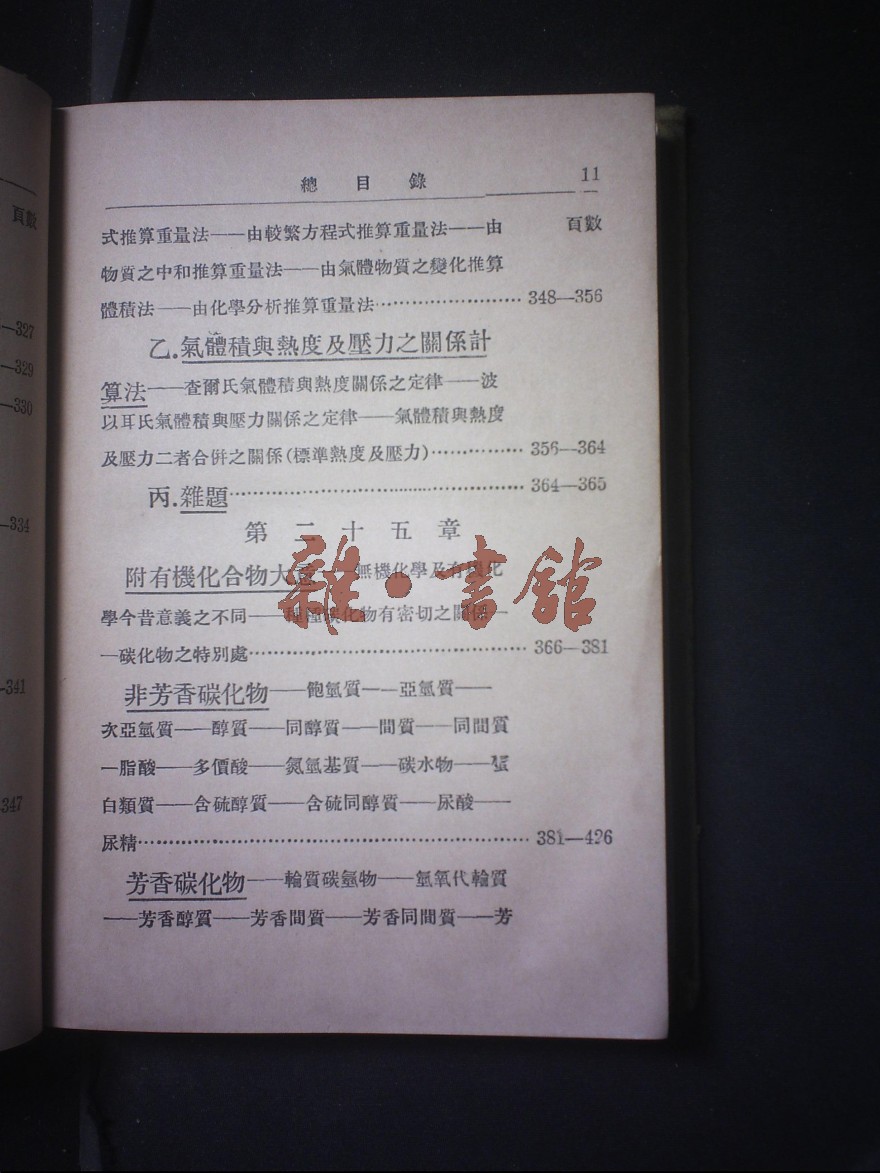 頁數
—327
—329
—330
—334
—341
347
總目錄 11
頁數
式推算重量法——由較繁方程式推算重量法——由
物質之中和推算重量法——由氣體物質之變化推算
體積法——由化學分析推算重量法…………………… 348—356
乙.氣體積與熱度及壓力之關係計
算法——查爾氏氣體積與熱度關係之定律——波
以耳氏氣體積與壓力關係之定律——氣體積與熱度
及壓力二者合併之關係(標準熱度及壓力)…………… 356—364
丙.雜題………………………………………… 364—365
第二十五章
附有機化合物大 無機化學及有機化
學今昔意義之不同——種種碳化物有密切之關係—
—碳化物之特別處……………………………………… 366—381
非芳香碳化物——飽氫質——亞氫質——
次亞氫質——醇質——同醇質——間質——同間質
—脂酸——多價酸——氮氫基質——碳水物——蛋
白類質——含硫醇質——含硫同醇質——尿酸——
尿精……………………………………………………… 381—426
芳香碳化物——輪質碳氫物——氫氧代輪質
——芳香醇質——芳香間質——芳香同間質——芳
雜·書館